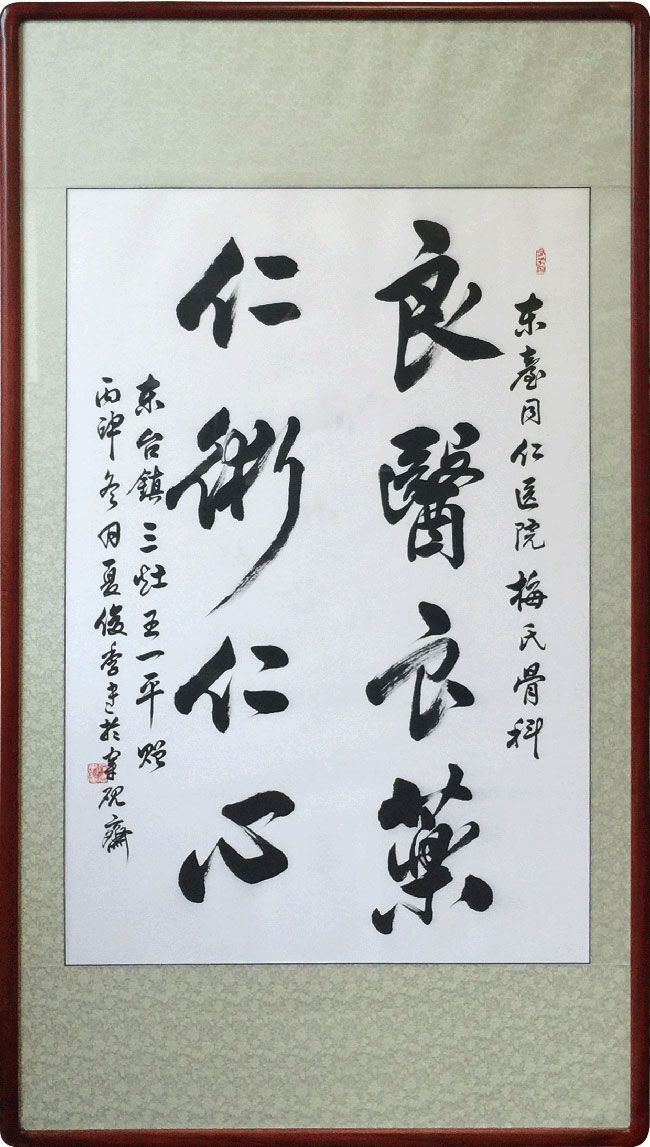 东臺同仁医院梅氏骨科
良醫良藥
仁術仁心
东台鎮三灶王一平赠
丙申冬月夏俊香书於宝砚齋